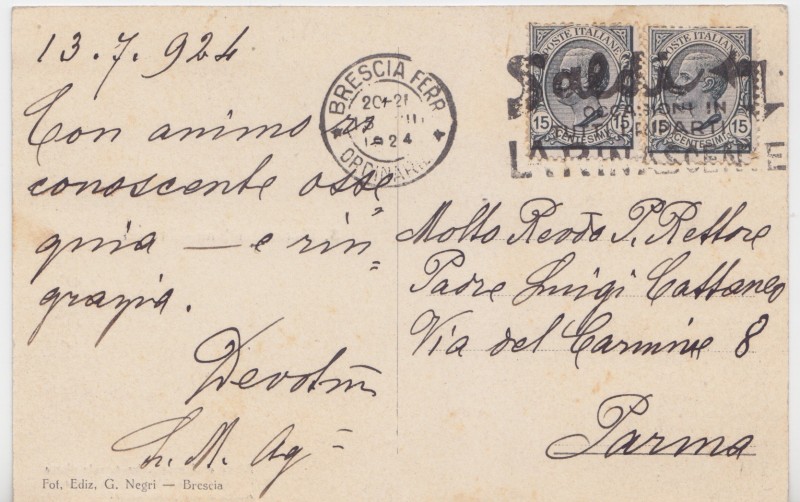 13.7.924
Con animo ri=
conoscente osse=
quia — e rin=
grazia.
Devotm
M. Ag=
Fot. Ediz. G. Negri — Brescia
BRESCIA FERR.
20-21
1924
ORDINARIE
POSTE ITALIANE
15 CENTESIMI 15
POSTE ITALIANE
15 CENTESIMI 15
Saldi
OCCASIONI IN
LA RINASCENTE
Molto Revdo P. Rettore
Padre Luigi Cattaneo
Via del Carmine 8
Parma